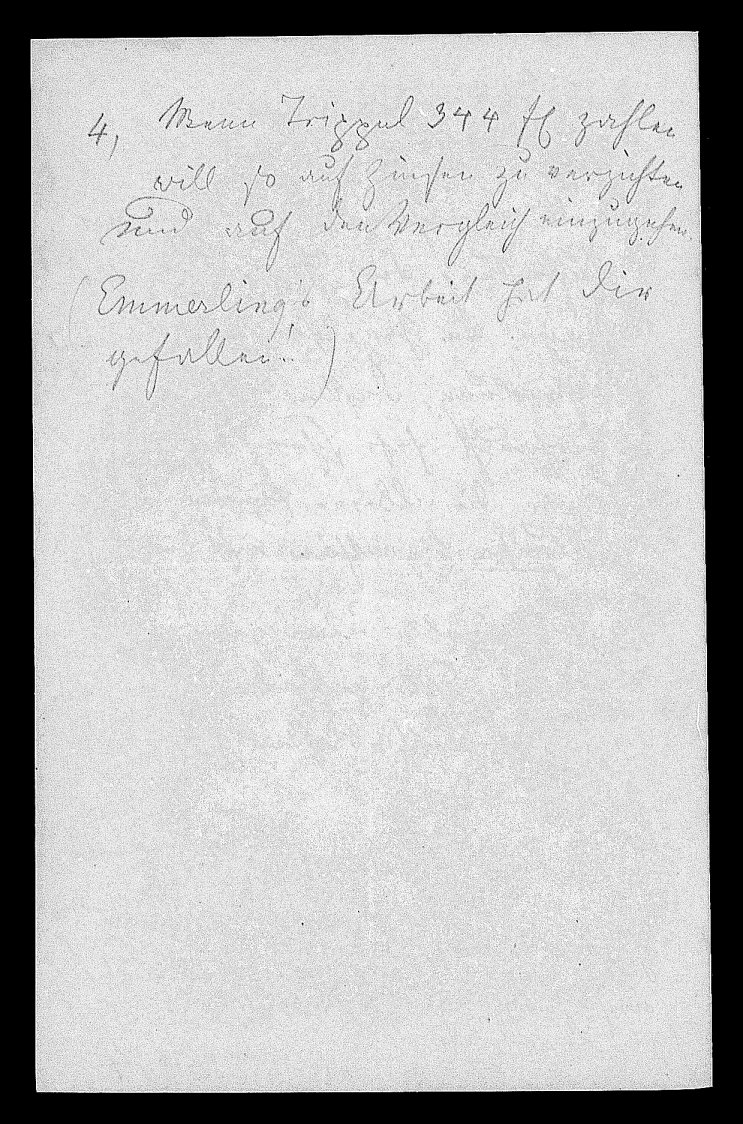 4, Wenn Trippel 344 fl zahlen
will so auf Zinsen zu verzichten
und auf den Vergleich einzugehen.
(Emmerling's Arbeit hat Dir
gefallen!)